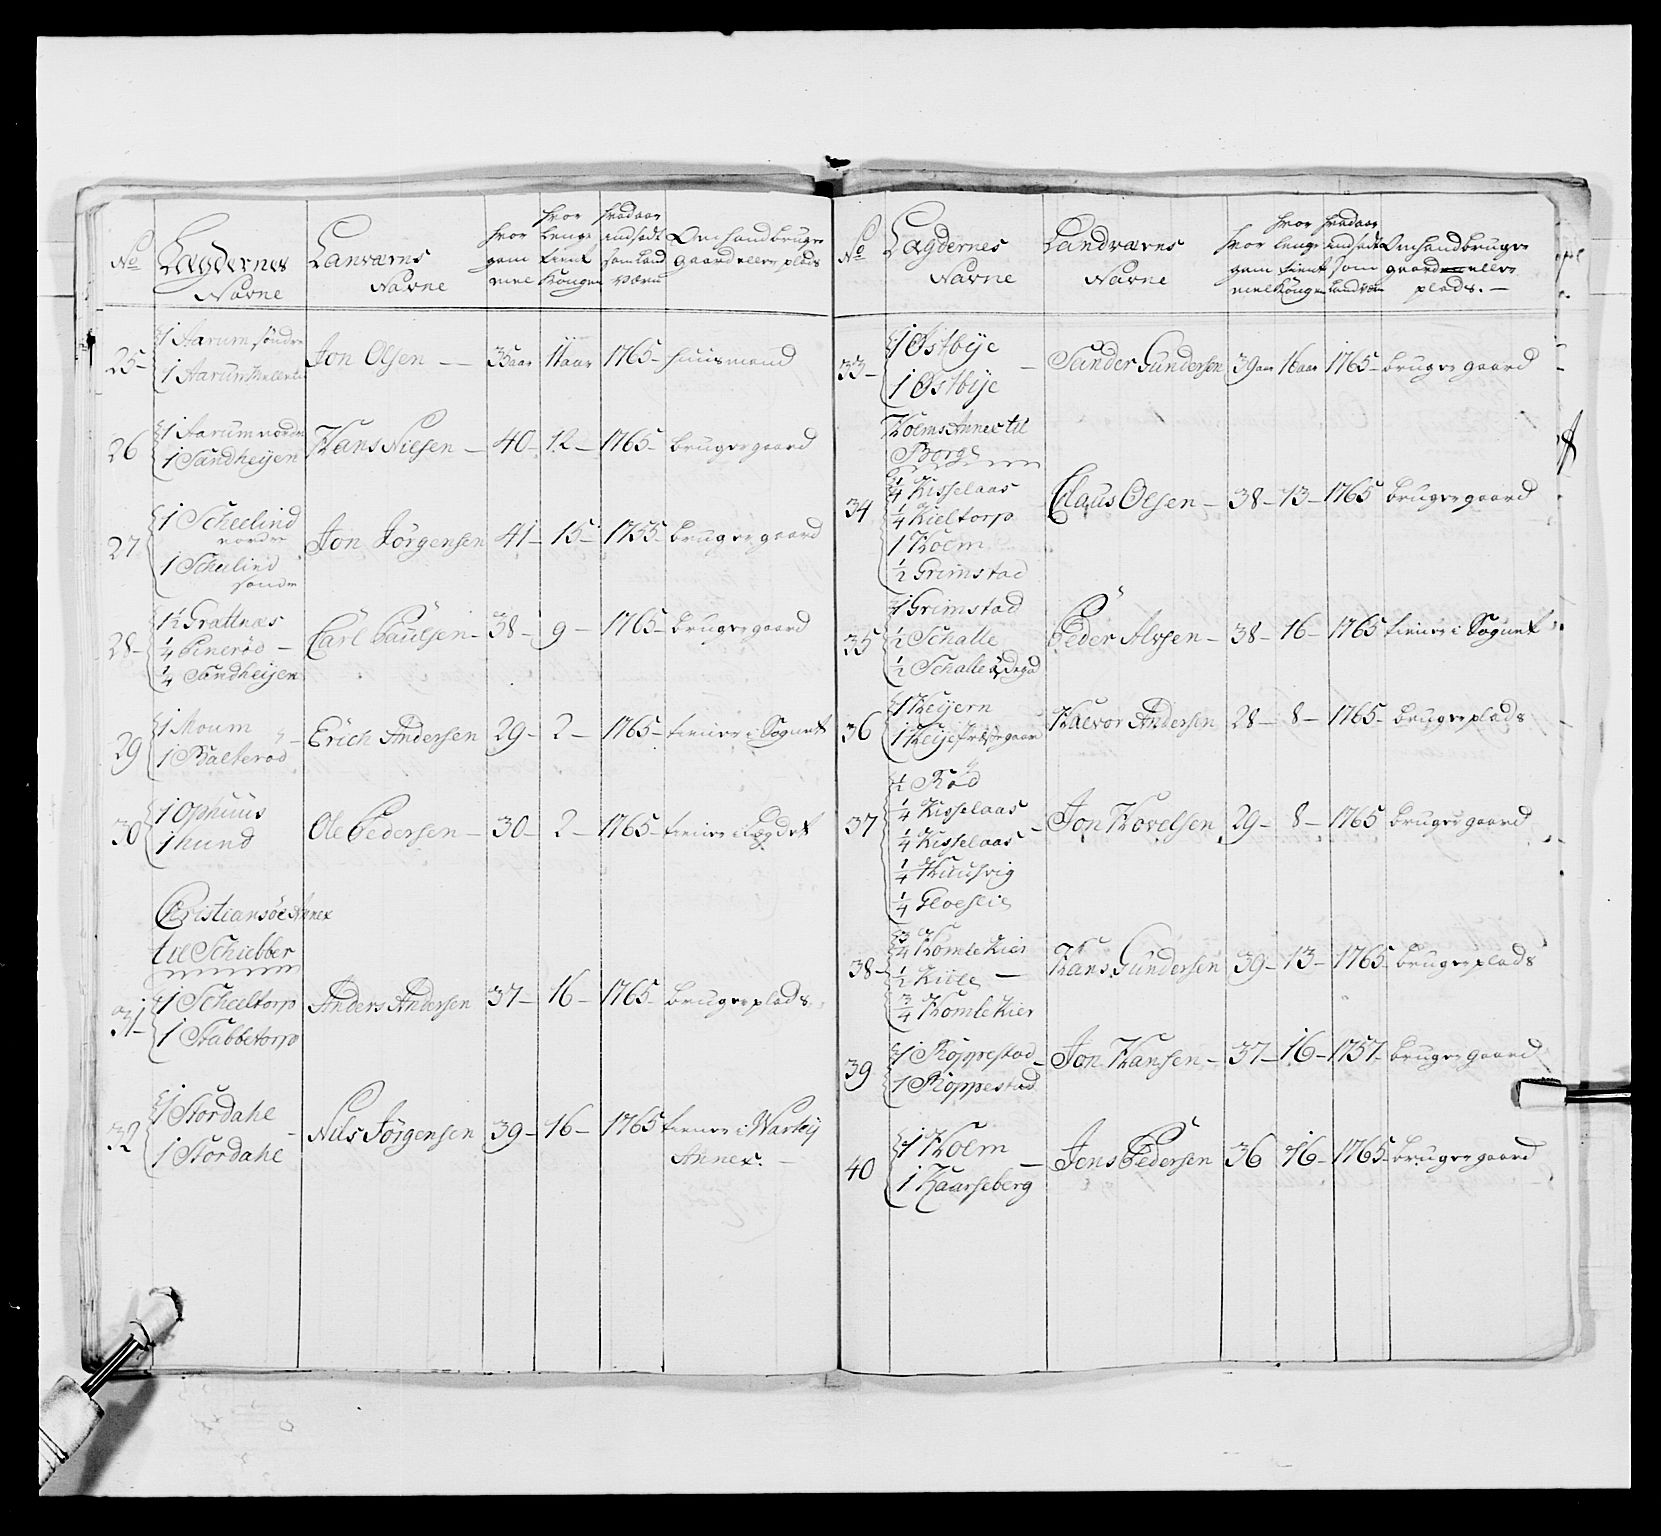 No
Lægdernes
Navne
Lanværns
Navne
hvor
gam
mel
hvor
lenge
tient
Kongen
hvadaar
indsadt
som Land
værn
Om hand bruger
gaard eller plads
25 1 Aarum søndre
1 Aarum Mellem Jon Olsen 35 aar 11 aar 1765 huusmand
26 1 Aarum nordre
1 Sandheijen Hans Nielsen 40 12 1765 bruger gaard
27 1 Scheelind
nordre
1 Scheelind
søndre Jon Jörgensen 41 15 1755 bruger gaard
28 1½ Grattnæs
¼ Enerød
¼ Sandheijen Carl Paulsen 38 9 1765 bruger gaard
29 1 Moum
1 Balterød Erich Andersen 29 2 1765 tiener i Sognet
30 1 Ophuus
1 hund Ole Pedersen 30 2 1765 tiener i Lægdet
Christiansöe Annex
til Schiebber
31 1 Scheltorp
1 Stabbetorp Anders Andersen 37 16 1765 bruger plads
32 1 Stordahe
1 Stordahe Nils Jörgensen 39 16 1765 tiener i Warteij
Annex.
No
Lægdernes
Navne
Landværns
Navne
hvor
gam
mel
hvor
lenge
tient
Kongen
hvadaar
indsadt
som
Landværn
Om hand bruger
gaard eller
plads.
33 1 Østbije
1 Østbije Sander Gundersen 39 aar 16 aar 1765 bruger gaard
Hoems Annex til
Borge
34 ¼ Kisselaas
¼ Kieltorp
1 Hoem
½ Grimstad Claus Olsen 38 13 1765 bruger gaard
35 1 Grimstad
½ Schalle
½ Schalle ødegd Peder Alvsen 38 16 1765 tiener i Sognet
36 1 Heijern
1 Heije Halvor Andersen 28 8 1765 bruger plads
37 ½ Rød
¼ Kisselaas
¼ Kisselaas
¼ Huusvig
¼ Gloeslie Jon Hovelsen 29 8 1765 bruger gaard
38 ¾ Homlekier
½ Kiile
¾ Homlekier Hans Gundersen 39 13 1765 bruger plads
39 1 Roppestad
1 Roppestad Jon Hansen 37 16 1757 bruger gaard
40 1 Hoem
1 Kaarseberg Jens Pedersen 36 16 1765 bruger gaard